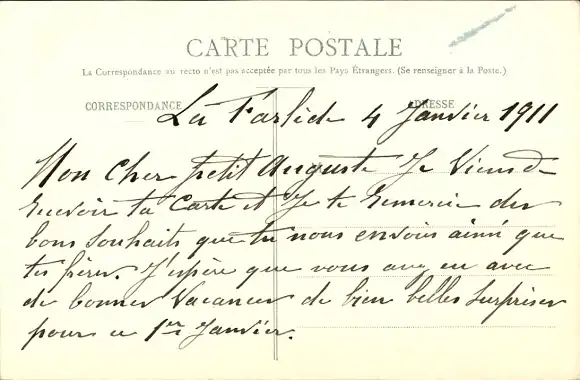 CARTE POSTALE
La Correspondance au recto n'est pas acceptée par tous les Pays Étrangers. (Se renseigner à la Poste.)
CORRESPONDANCE
ADRESSE
La Farlède 4 Janvier 1911
Mon Cher petit Auguste Je Viens de
recevoir ta Carte et Je te remercie des
bons Souhaits que tu nous envois ainsi que
tes frères. J'espère que vous avez eu avec
de bonnes Vacances de bien belles Surprises
pour ce 1er Janvier.